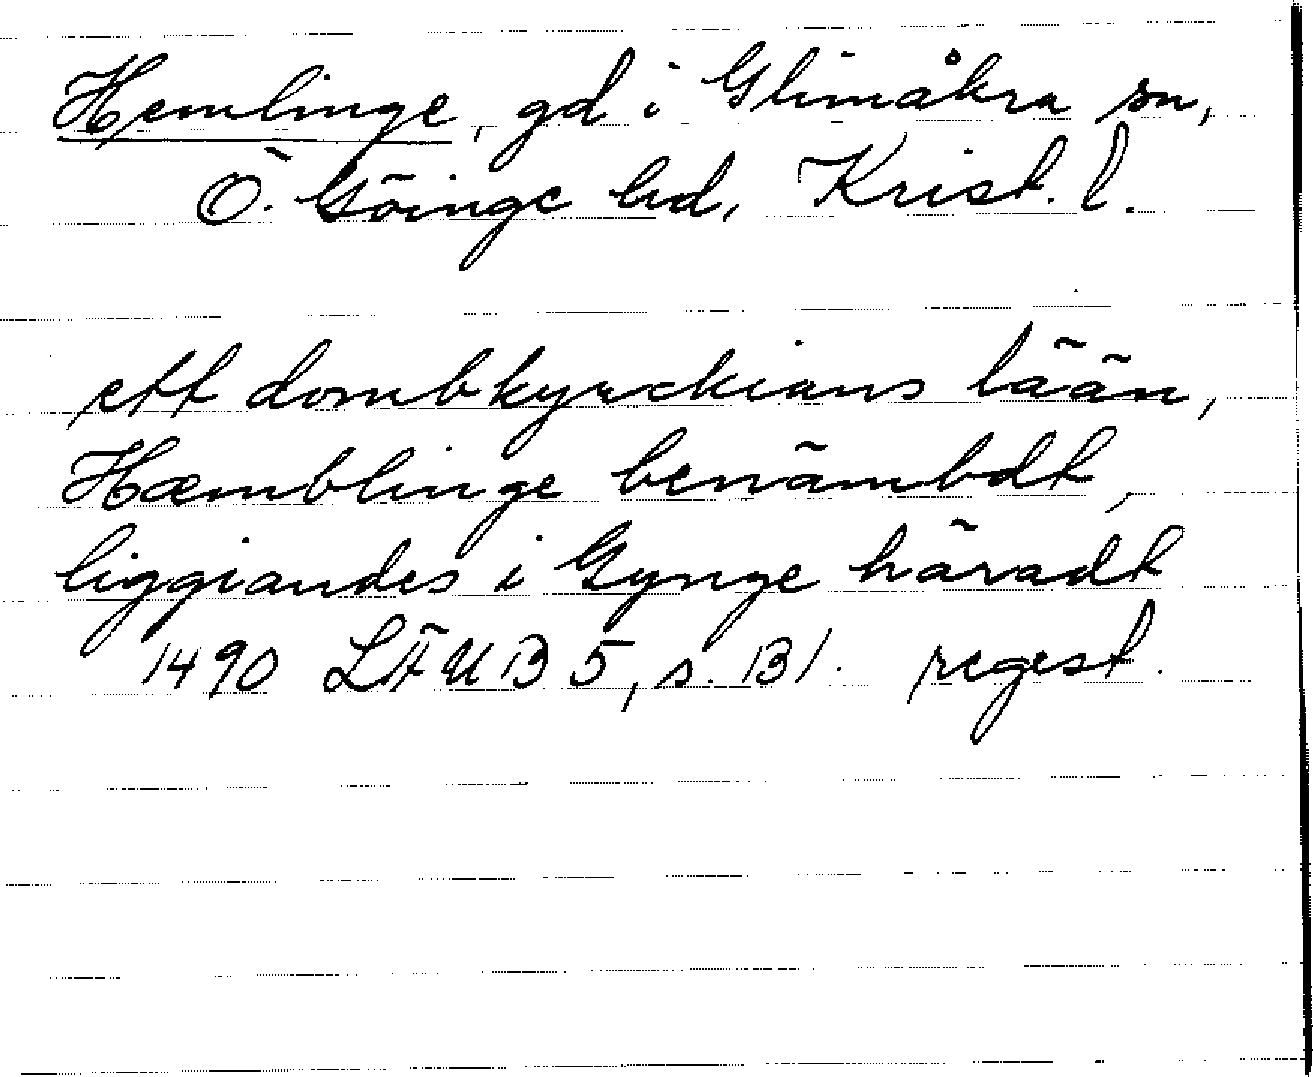 Hemlinge, gd i Glimåkra sn,
Ö. Göinge hd, Krist. l.
ett dombkyrckians lään,
Hæmblinge benämbdt,
liggiandes i Gynge häradt
1490 LÄUB 5, s. 131. regest.